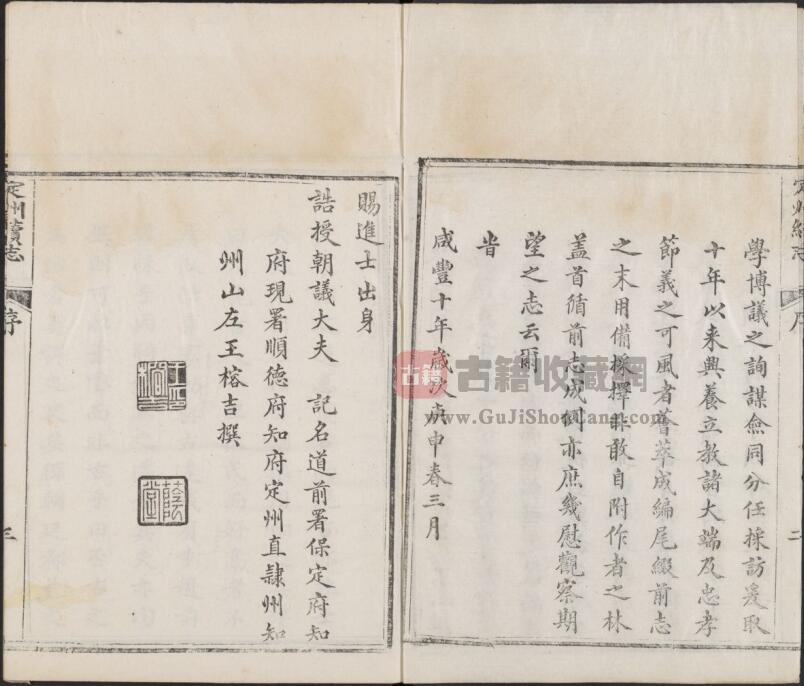 學博議之詢謀僉同分任採訪爰取
十年以来興養立教諸大端及忠孝
節義之可風者薈萃成編尾綴前志
之末用備採擇非敢自附作者之林
蓋首循前志成例亦庶幾慰觀察期
望之志云爾
旹
咸豐十年歲次庚申春三月
賜進士出身
誥授朝議大夫 記名道前署保定府知
府現署順德府知府定州直隸州知
州山左王榕吉撰
定州續志
序
三
定州續志
序
二
古籍 古籍收藏网
www.GuJiShouCang.com